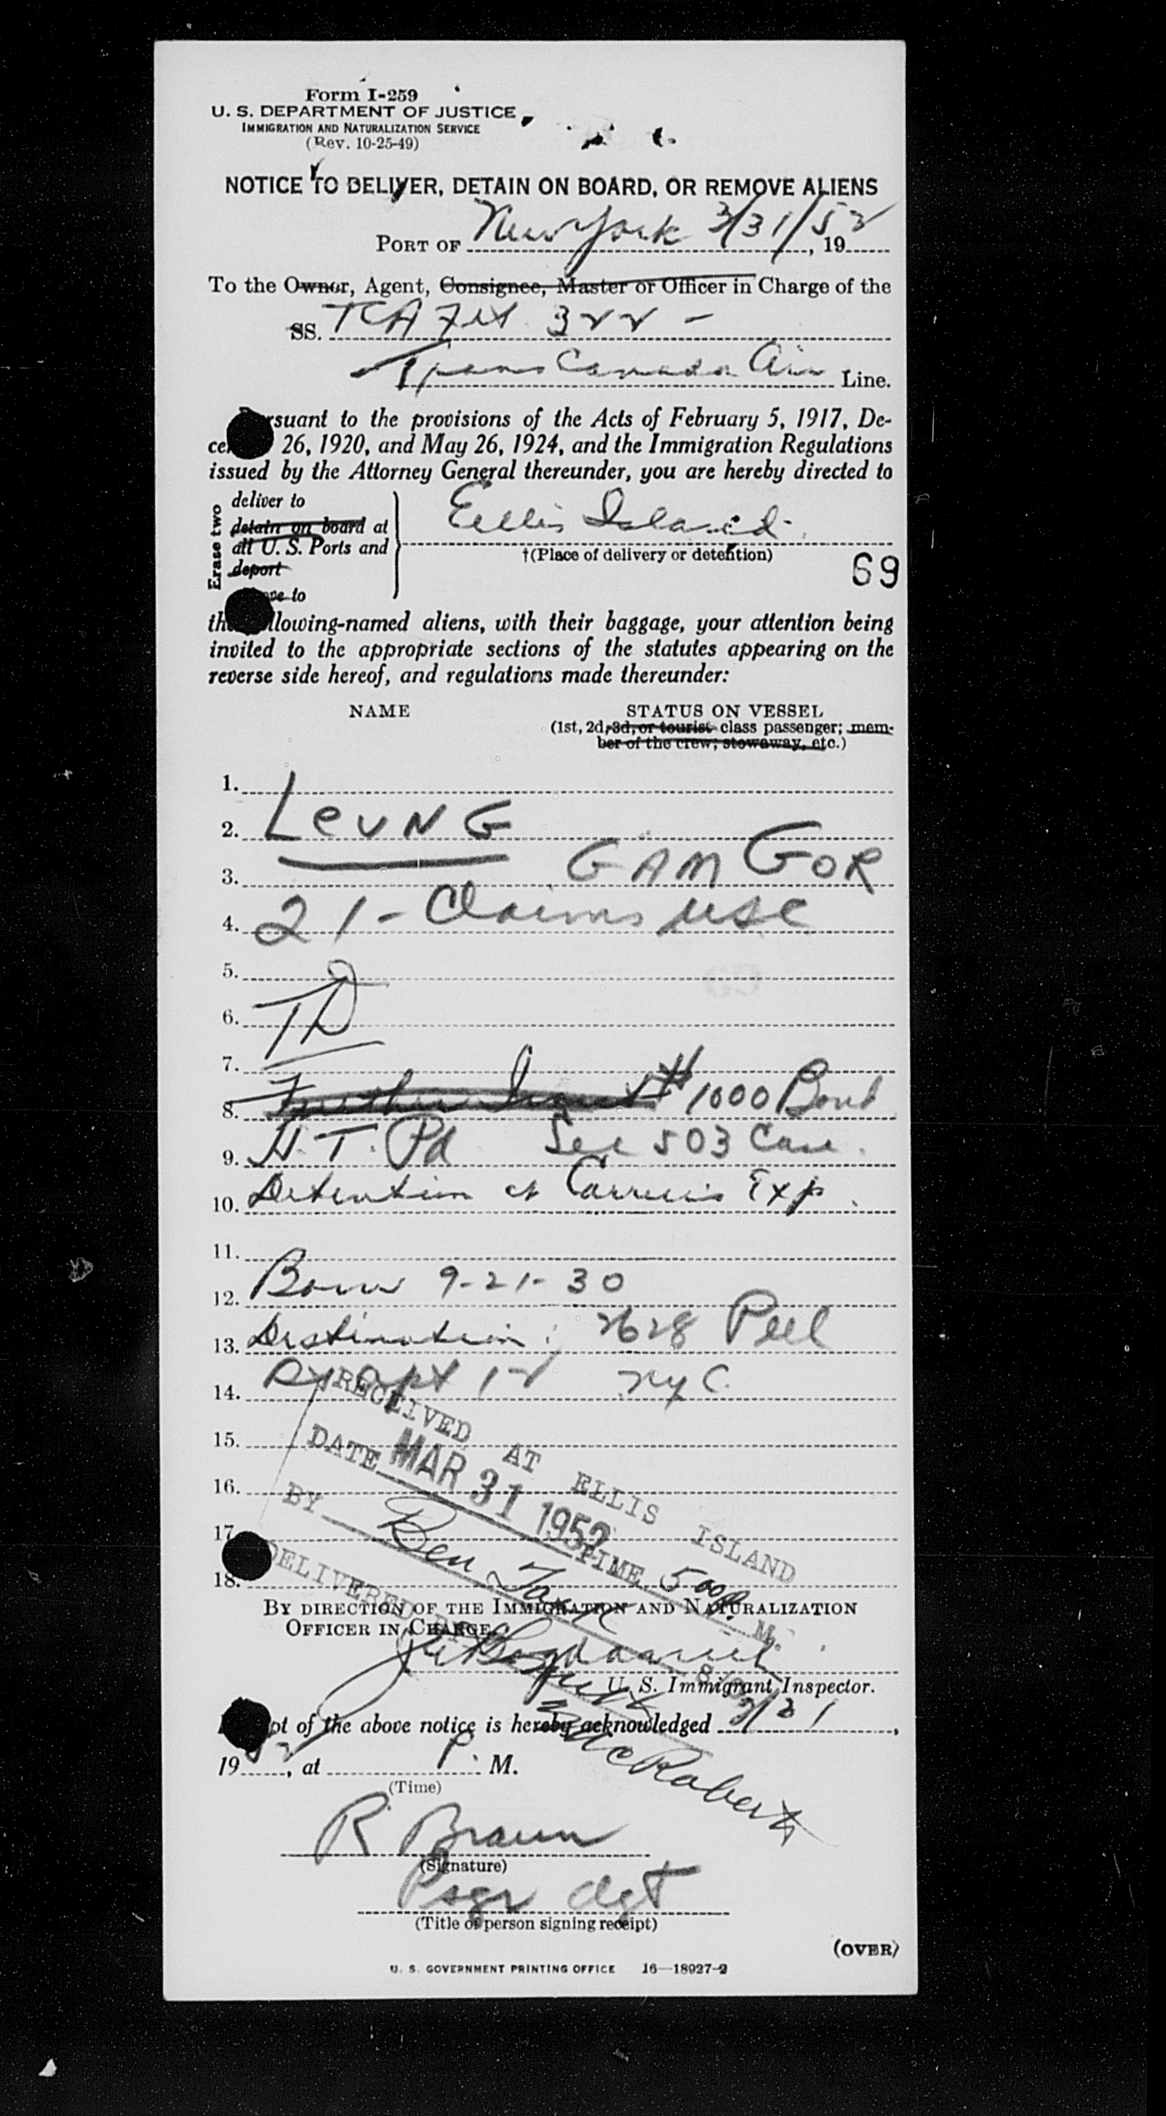 Form I-259
U. S. DEPARTMENT OF JUSTICE
IMMIGRATION AND NATURALIZATION SERVICE
(Rev. 10-25-49)
NOTICE TO DELIVER, DETAIN ON BOARD, OR REMOVE ALIENS
PORT OF New York 3/31/52, 19
To the Owner, Agent, Consignee, Master or Officer in Charge of the
SS. TCA Flt 322 -
Trans Canada Air Line.
suant to the provisions of the Acts of February 5, 1917, De-
ce 26, 1920, and May 26, 1924, and the Immigration Regulations
issued by the Attorney General thereunder, you are hereby directed to
Erase two
deliver to
detain on board at
all U. S. Ports and
deport
ove to
Ellis Island.
†(Place of delivery or detention)
69
th llowing-named aliens, with their baggage, your attention being
invited to the appropriate sections of the statutes appearing on the
reverse side hereof, and regulations made thereunder:
NAME STATUS ON VESSEL
(1st, 2d, 3d, or tourist class passenger; mem-
ber of the crew; stowaway, etc.)
1.
2. LeUNG
3. GAM GOR
4. 21 - Claims USC
5.
6. TD
7.
8. #1000 Bond
9. H.T. Pd See 503 Case.
10. Detention at Carriers Exp.
11.
12. Born 9-21-30
13. Destination: 2628
14. apt 12 NYC
15.
16.
17.
18.
RECEIVED AT ELLIS ISLAND
DATE MAR 31 1952 TIME 5 00 P. M.
BY Ben
DELIVERED
BY DIRECTION OF THE IMMIGRATION AND NATURALIZATION
OFFICER IN CHARGE
U. S. Immigrant Inspector.
pt of the above notice is hereby acknowledged 3/31,
1952, at P. M.
(Time)
McRoberts
R Braun
(Signature)
Psgr Agt
(Title of person signing receipt)
(OVER)
U. S. GOVERNMENT PRINTING OFFICE 16—18927-2